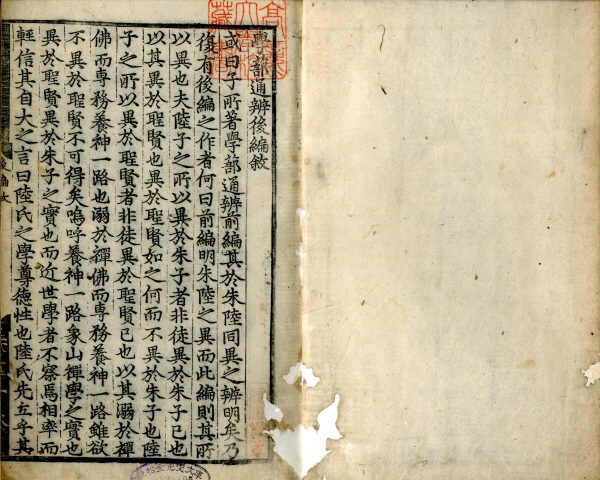 學蔀通辨後編敘
或曰子所著學蔀通辨前編其於朱陸同異之辨明矣乃
復有後編之作者何曰前編明朱陸之異而此編則其所
以異也夫陸子之所以異於朱子者非徒異於朱子已也
以其異於聖賢也異於聖賢如之何而不異於朱子也陸
子之所以異於聖賢者非徒異於聖賢已也以其溺於禪
佛而專務養神一路也溺於禪佛而專務養神一路雖欲
不異於聖賢不可得矣嗚呼養神一路象山禪學之實也
異於聖賢異於朱子之實也而近世學者不察焉相率而
輕信其自大之言曰陸氏之學尊德性也陸氏先立乎其
後編敘